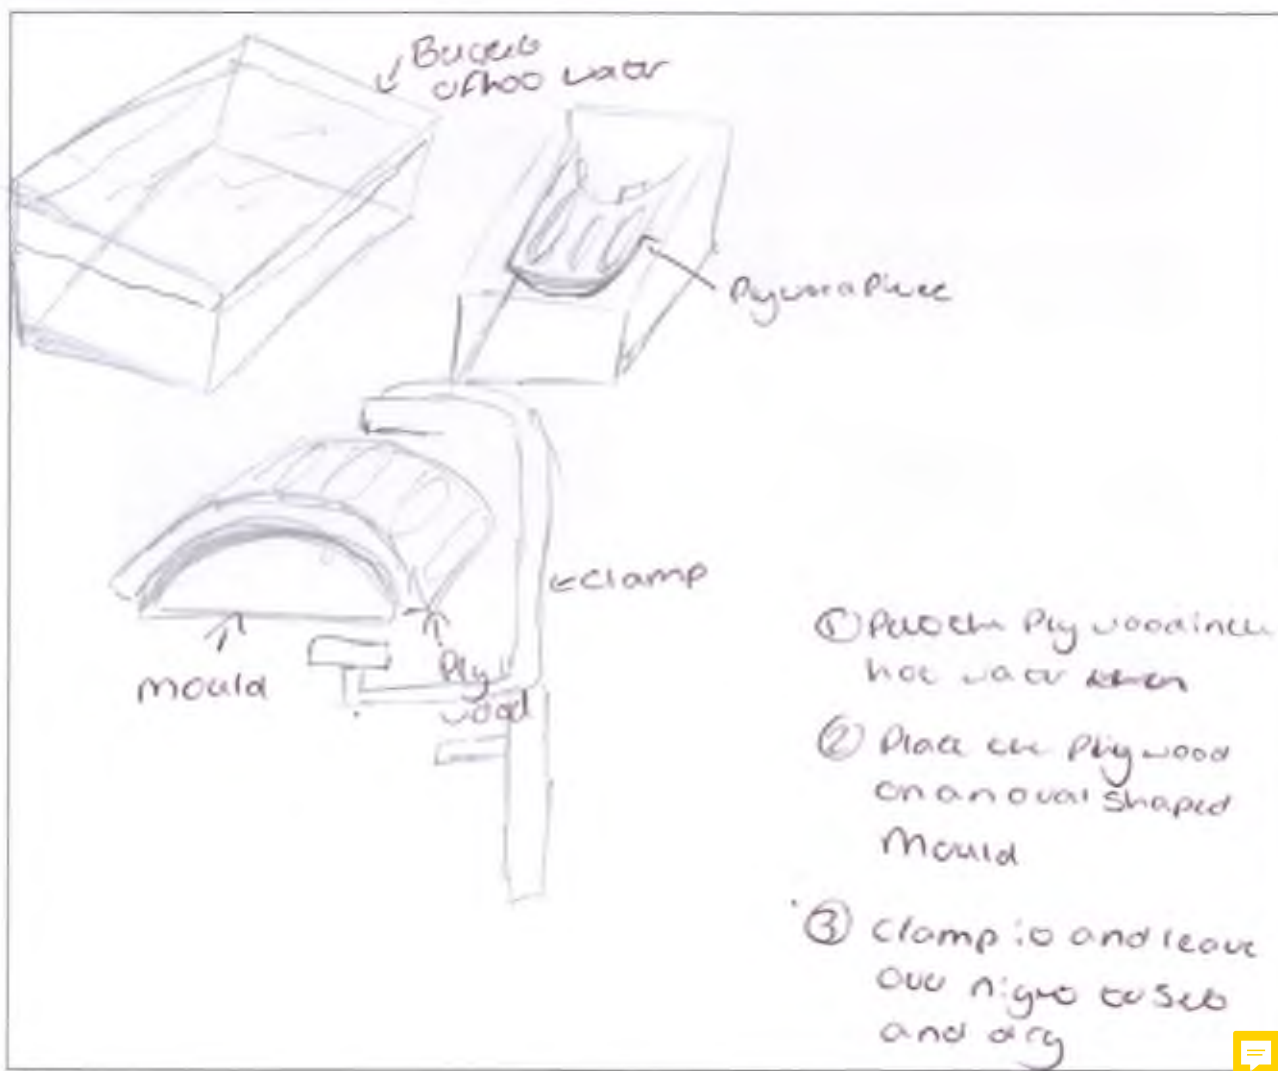 Bucket
of hot water
Plywood Piece
Clamp
Mould
Ply
wood
① Put the Ply wood in the
hot water
② Place the Ply wood
on an oval shaped
Mould
③ Clamp it and leave
over night to set
and dry